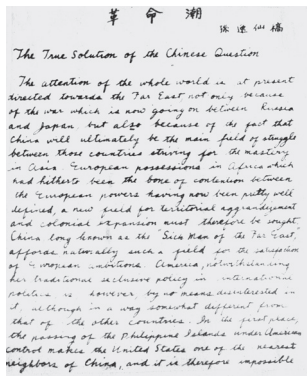 革命潮
The True Solution of the Chinese Question
The attention of the whole world is at present
directed towards the Far East not only because
of the war which is now going on between Russia
and Japan, but also because of the fact that
China will ultimately be the main field of struggle
between those countries striving for the mastery
in Asia. European possessions in Africa which
had hitherto been the bone of contention between
the European powers having now been pretty well
defined, a new field for territorial aggrandizement
and colonial expansion must therefore be sought.
China long known as the "Sick Man of the Far East"
affords naturally such a field for the satisfaction
of European ambitions. America, notwithstanding
her traditional seclusive policy in international
politics is however, by no means disinterested in
it, although in a way somewhat different from
that of the other countries. In the first place,
the passing of the Philippine Islands under American
control makes the United States one of the nearest
neighbors of China, and it is therefore impossible